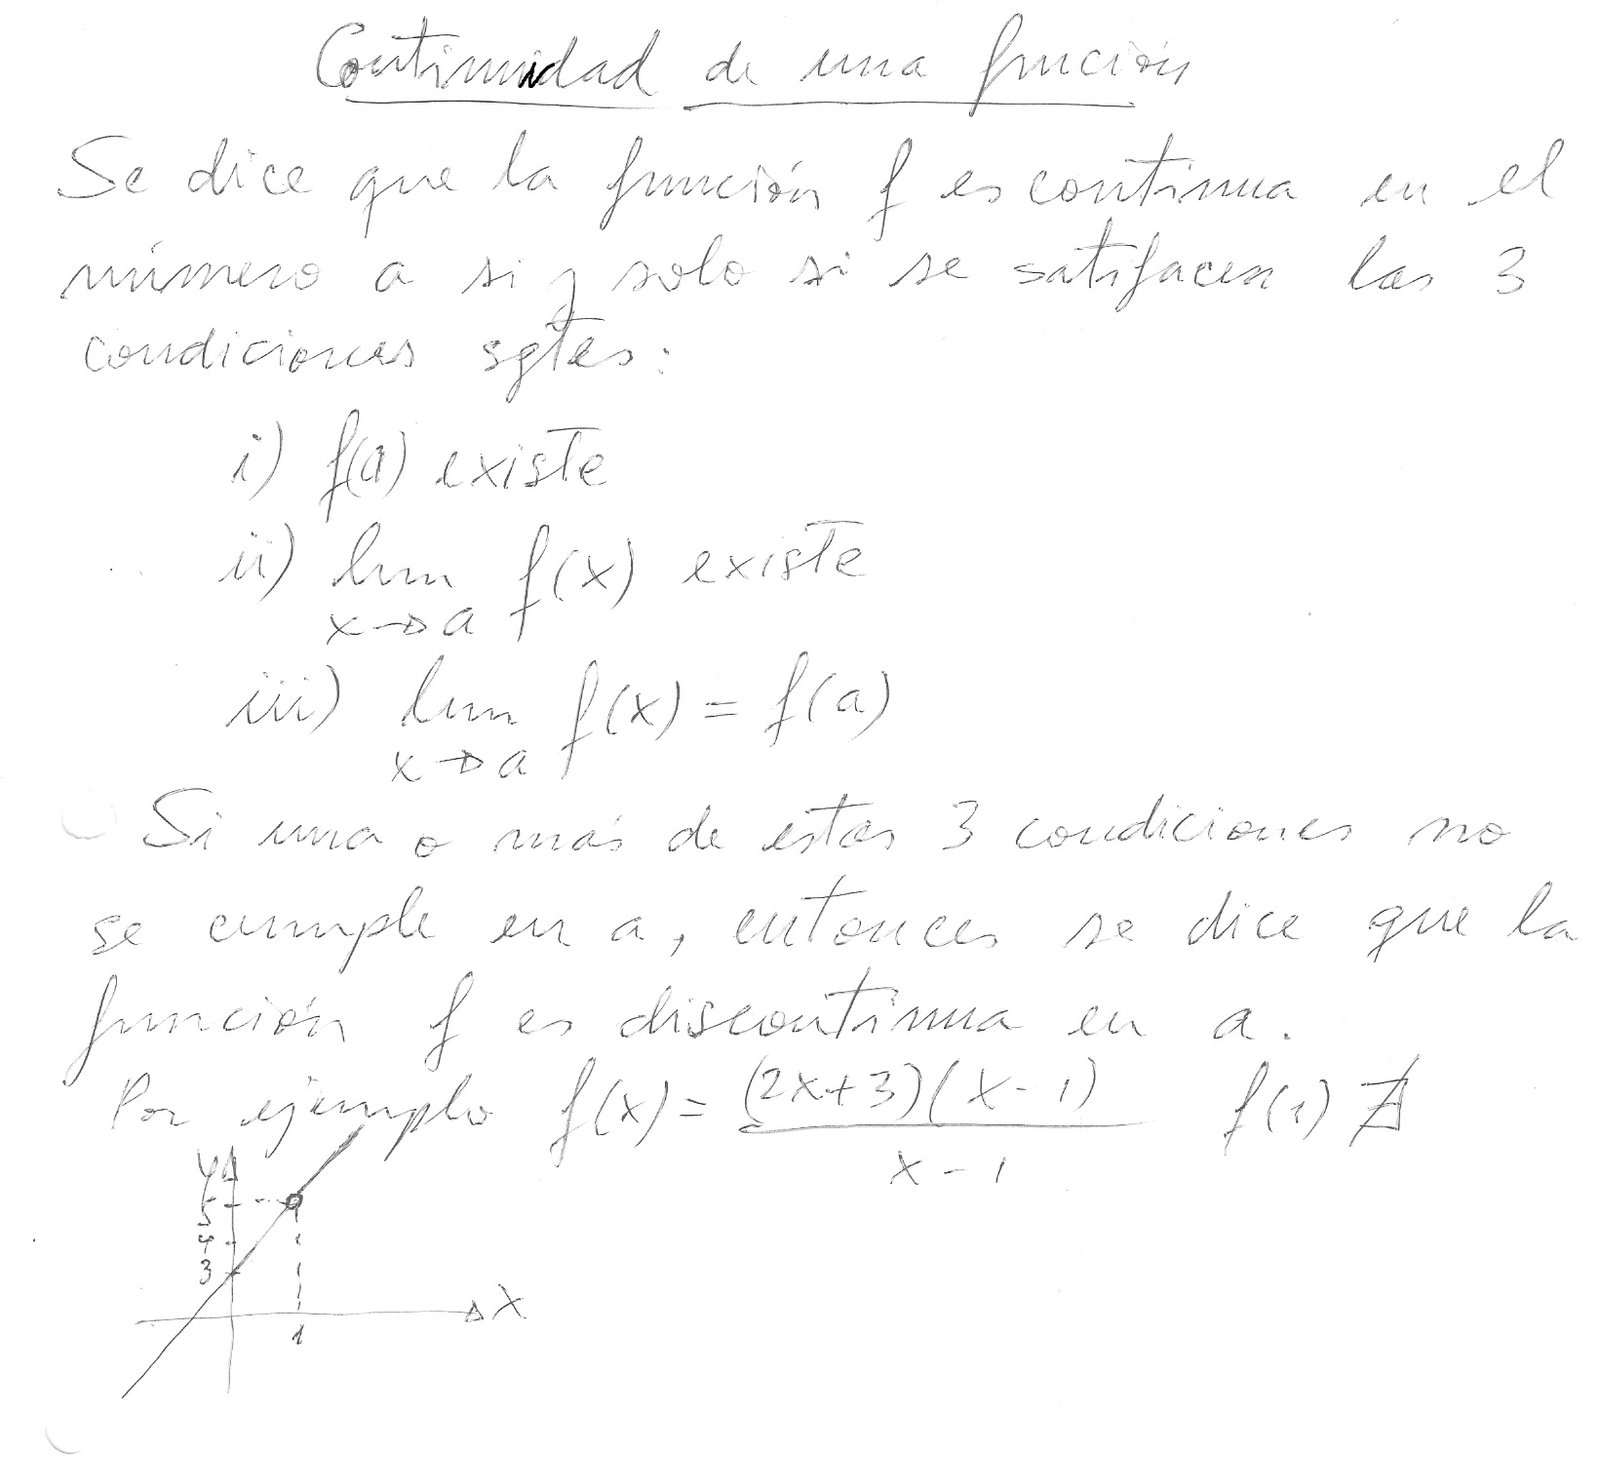 Continuidad de una función
Se dice que la función f es continua en el
número a si y solo si se satisfacen las 3
condiciones sgtes:
i) f(a) existe
ii) lim f(x) existe
x→a
iii) lim f(x) = f(a)
x→a
Si una o más de estas 3 condiciones no
se cumple en a, entonces se dice que la
función f es discontinua en a.
Por ejemplo f(x) = (2x+3)(x-1) f(1) ∄
x-1
y
5
4
3
x
1